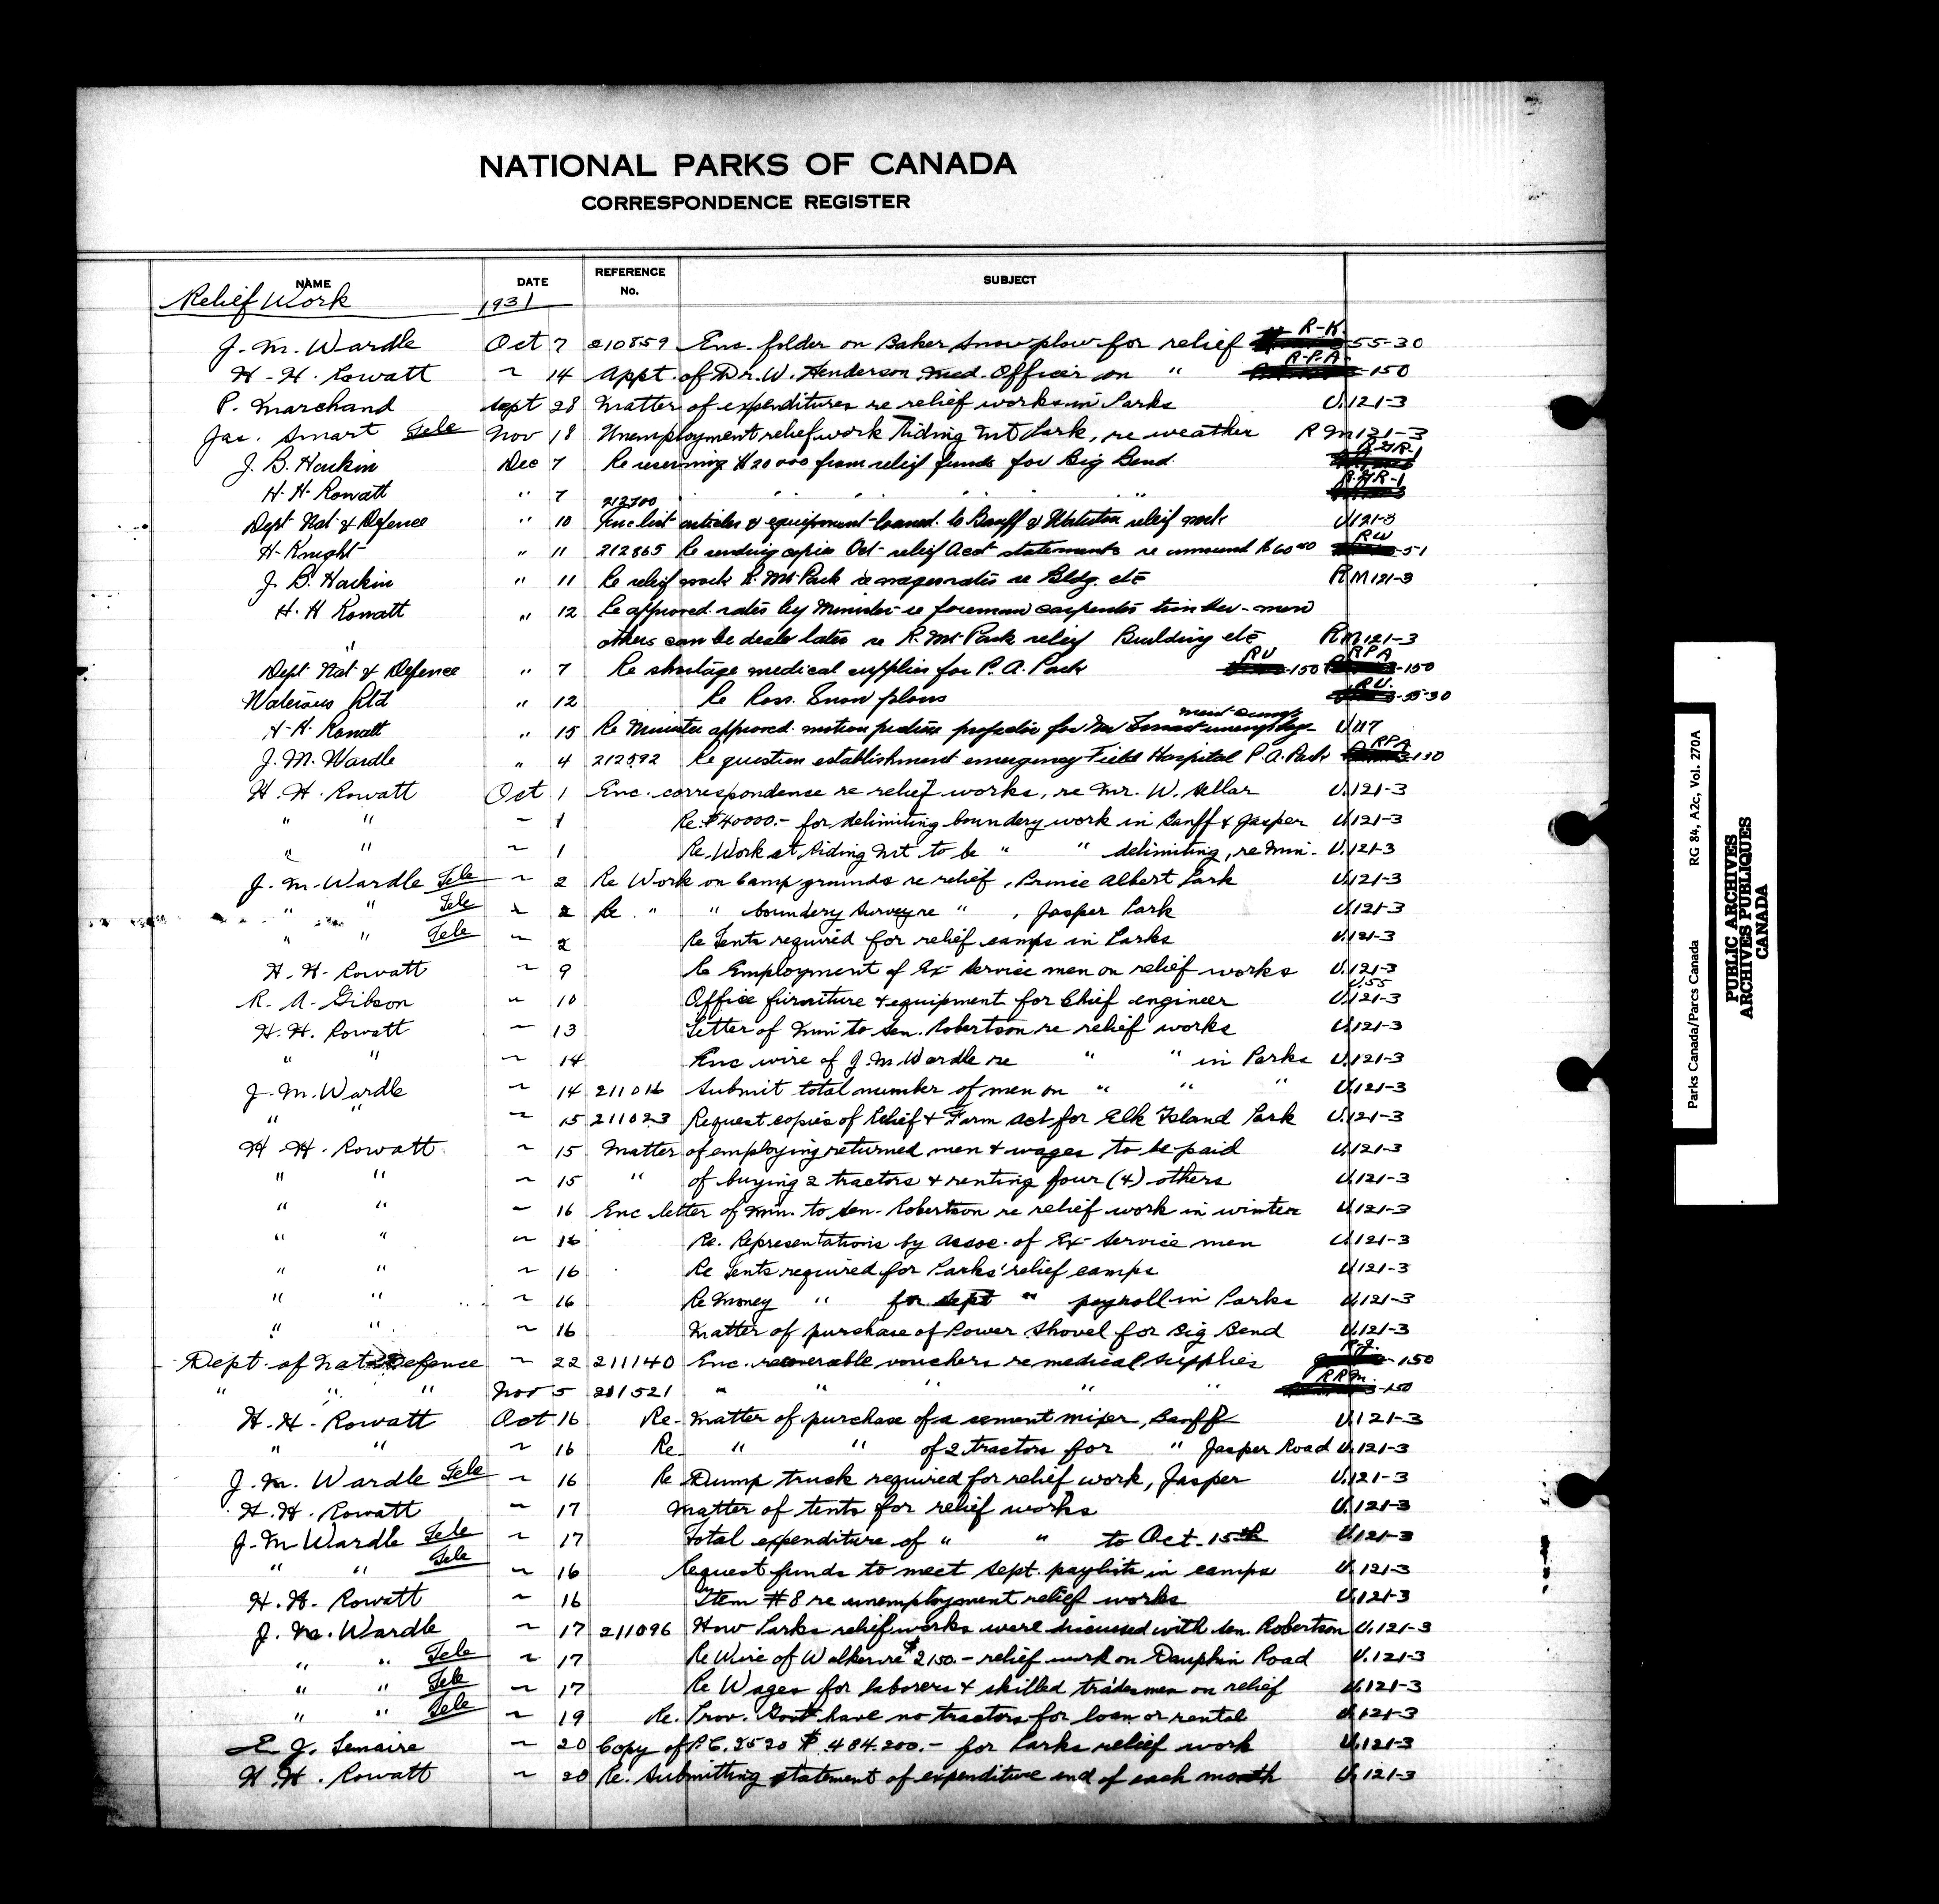 NATIONAL PARKS OF CANADA
CORRESPONDENCE REGISTER
NAME DATE REFERENCE No. SUBJECT
Relief Work 1931
J. M. Wardle Oct 7 210859 Enc. folder on Baker Snow plow for relief R-K. 55-30
H. H. Rowatt ~ 14 Appt. of Dr. W. Henderson Med. Officer on " R-P-A -150
P. Marchand Sept 28 Matter of expenditures re relief works in Parks U.121-3
Jas. Smart Tele Nov 18 Unemployment relief work Riding Mt Park, re weather R M 121-3
J. B. Harkin Dec 7 Re reserving $20000 from relief funds for Big Bend.
H. H. Rowatt " 7 " " " " "
Dept Nat & Defence " 10 212700 Enc list articles & equipment loaned to Banff & Waterton relief work U121-3
H. Knight " 11 212865 Re sending copies Oct relief Acct statements re amount $60 00 RW -51
J. B. Harkin " 11 Re relief work R. Mt Park re wages rates re Bldg. etc RM121-3
H. H Rowatt " 12 Re approved rates by Minister re foreman carpenters timber-men
" others can be dealt later re R. Mt Park relief Building etc RM121-3
Dept Nat & Defence " 7 Re shortage medical supplies for P. A. Park RU -150 RPA -150
Waterous Ltd " 12 Re Ross. Snow plows RU. -55-30
H. H. Rowatt " 15 Re Minister approved motion picture projector for Mr Smart unemploy-ment camps U117
J. M. Wardle " 4 212592 Re question establishment emergency Field Hospital P. A. Park RPA 150
H. H. Rowatt Oct 1 Enc. correspondence re relief works, re Mr. W. Sellar U.121-3
" " ~ 1 Re. $40000.- for delimiting boundery work in Banff & Jasper U.121-3
" " ~ 1 Re. Work at Riding Mt to be " " delimiting, re Min. U.121-3
J. M. Wardle Tele ~ 2 Re Work on Camp grounds re relief, Prince Albert Park U.121-3
" " Tele ~ 2 Re " " boundery Survey re " , Jasper Park U.121-3
" " Tele ~ 2 Re Tents required for relief camps in Parks U.121-3
H. H. Rowatt ~ 9 Re Employment of Ex-Service men on relief works U.121-3
R. A. Gibson ~ 10 Office furniture & equipment for Chief engineer U.55 U.121-3
H. H. Rowatt ~ 13 Letter of Min to Sen. Robertson re relief works U.121-3
" " ~ 14 Enc wire of J. M Wardle re " " in Parks U.121-3
J. M. Wardle ~ 14 211016 Submit total number of men on " " " U.121-3
" " ~ 15 211023 Request copies of Relief & Farm Act for Elk Island Park U.121-3
H. H. Rowatt ~ 15 Matter of employing returned men & wages to be paid U.121-3
" " ~ 15 " of buying 2 tractors & renting four (4) others U.121-3
" " ~ 16 Enc letter of Min. to Sen. Robertson re relief work in winter U.121-3
" " ~ 16 Re. Representations by Assoc. of Ex-Service men U.121-3
" " ~ 16 Re Tents required for Parks' relief camps U.121-3
" " ~ 16 Re Money " for Sept " payroll in Parks U.121-3
" " ~ 16 Matter of purchase of Power Shovel for Big Bend U.121-3
Dept. of Nat. Defence ~ 22 211140 Enc. recoverable vouchers re medical supplies R-J. -150
" " " Nov 5 211521 " " " " " RRM. -150
H. H. Rowatt Oct 16 Re- Matter of purchase of a cement mixer, Banff U.121-3
" " ~ 16 Re. " " of 2 tractors for " Jasper Road U.121-3
J. M. Wardle Tele ~ 16 Re Dump truck required for relief work, Jasper U.121-3
H. H. Rowatt ~ 17 Matter of tents for relief works U.121-3
J. M Wardle Tele ~ 17 Total expenditure of " " to Oct. 15th U.121-3
" " Tele ~ 16 Request funds to meet Sept. paylists in camps U.121-3
H. H. Rowatt ~ 16 Item #8 re unemployment relief works U.121-3
J. M. Wardle ~ 17 211096 How Parks relief works were discussed with Sen. Robertson U.121-3
" " Tele ~ 17 Re Wire of Walker re $2150.- relief work on Dauphin Road U.121-3
" " Tele ~ 17 Re Wages for laborers & skilled tradesmen on relief U.121-3
" " Tele ~ 19 Re. Prov. Govt have no tractors for loan or rental U.121-3
E. J. Lemaire ~ 20 Copy of P.C. 2520 $ 484.200.- for Parks relief work U.121-3
H. H. Rowatt ~ 20 Re. Submitting statement of expenditure end of each month U.121-3
Parks Canada/Parcs Canada RG 84, A2c, Vol. 270A
PUBLIC ARCHIVES
ARCHIVES PUBLIQUES
CANADA